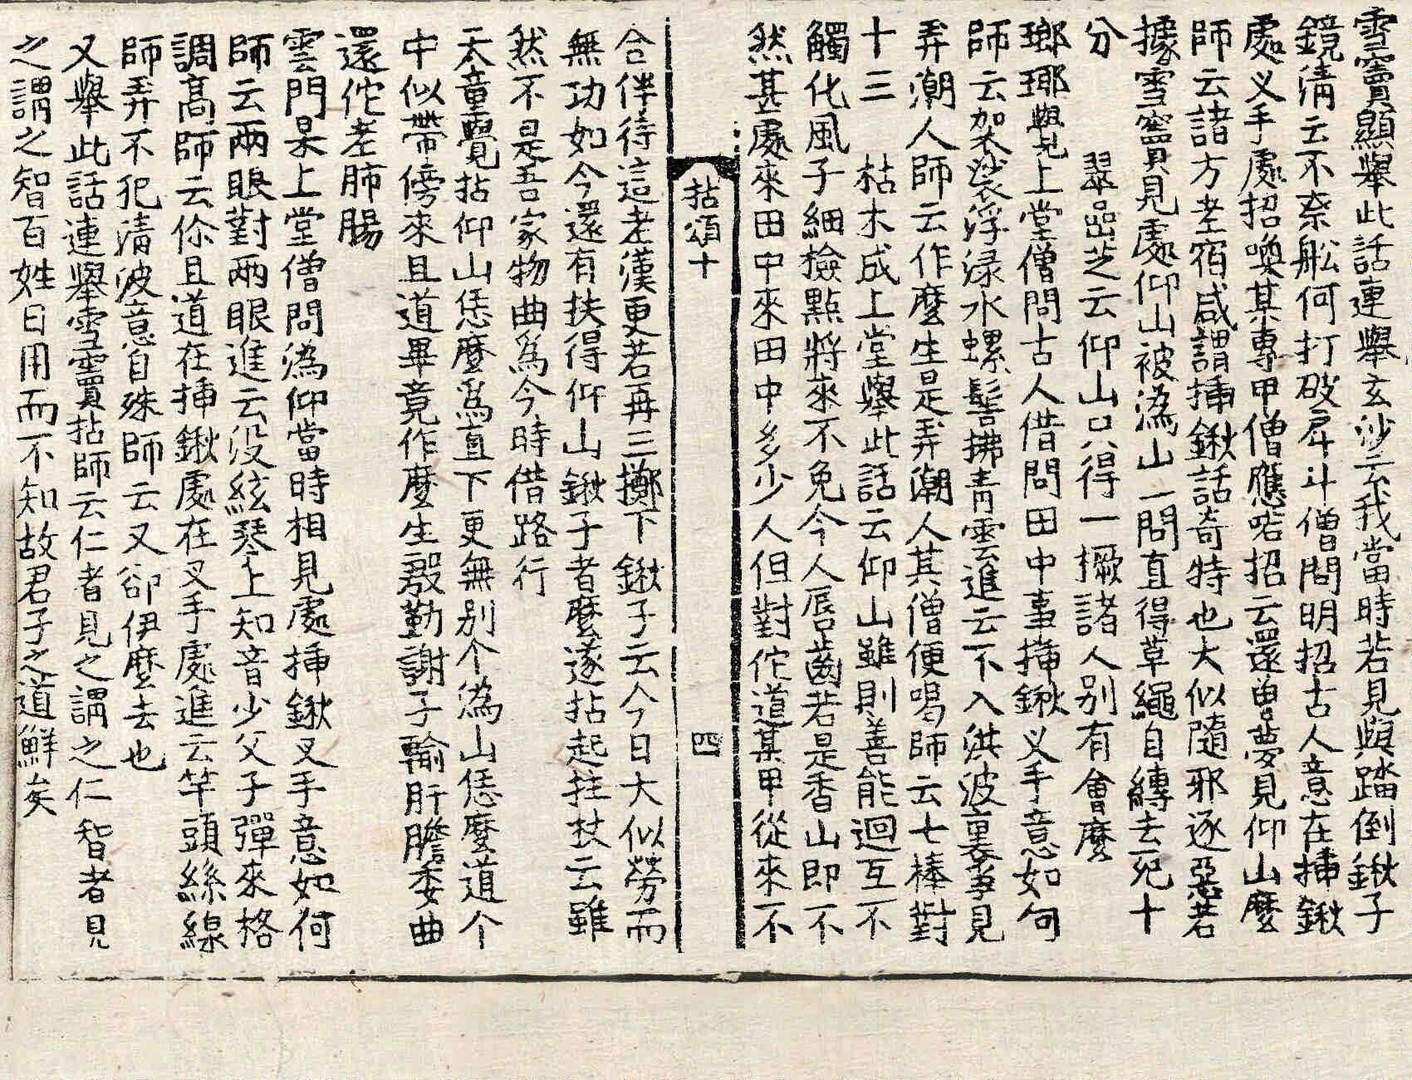 雪竇顯舉此話連舉玄沙云我當時若見與踏倒鍬子
鏡清云不奈舩何打破戽斗僧問明招古人意在揷鍬
處叉手處招喚某專甲僧應喏招云還曽夢見仰山麽
師云諸方老宿咸謂揷鍬話奇特也大似隨邪逐惡若
據雪竇見處仰山被潙山一問直得草繩自縛去死十
分 翠嵓芝云仰山只得一橛諸人别有會麽
瑯瑘覺上堂僧問古人借問田中事揷鍬叉手意如何
師云袈裟浮渌水螺髻拂青雲進云不入洪波裏爭見
弄潮人師云作麽生是弄潮人其僧便喝師云七棒對
十三 枯木成上堂舉此話云仰山雖則善能迴互不
觸化風子細檢點將來不免今人唇齒若是香山即不
然甚處來田中來田中多少人但對佗道某甲從來不
拈頌十 四
合伴待這老漢更若再三擲下鍬子云今日大似勞而
無功如今還有扶得仰山鍬子者麽遂拈起拄杖云雖
然不是吾家物曲爲今時借路行
天童覺拈仰山恁麽爲直下更無别个潙山恁麽道个
中似帶傍來且道畢竟作麽生殷勤謝子輸肝膽委曲
還佗老肺腸
雲門杲上堂僧問潙仰當時相見處揷鍬叉手意如何
師云兩眼對兩眼進云没絃琴上知音少父子彈來格
調髙師云你且道在揷鍬處在叉手處進云竿頭絲線
師弄不犯清波意自殊師云又卻伊麽去也
又舉此話連舉雪竇拈師云仁者見之謂之仁智者見
之謂之智百姓日用而不知故君子之道鮮矣